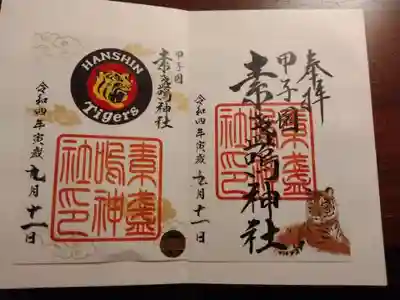 奉拝
甲子園
素盞嗚神社
素盞
嗚神
社印
令和四年寅歳 九月十一日
甲子園
素盞嗚神社
HANSHIN
Tigers
素盞
嗚神
社印
令和四年寅歳 九月十一日